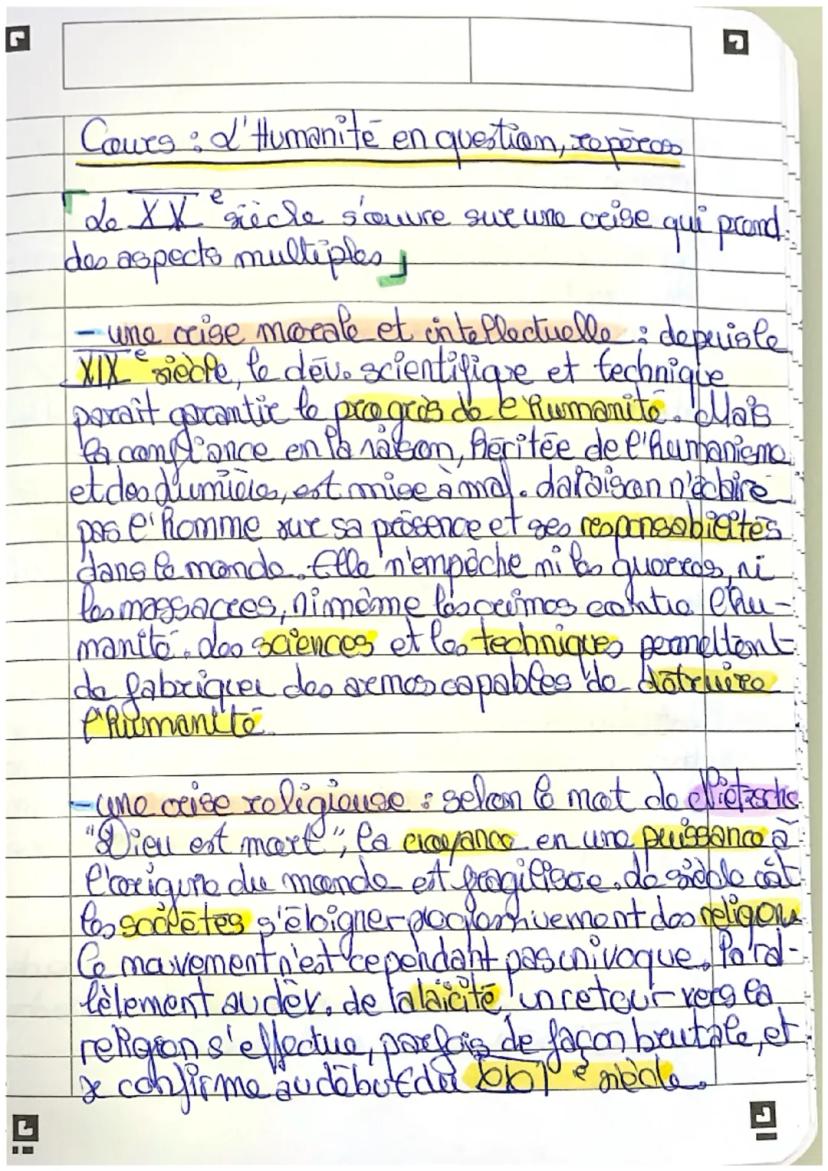 Cours : L'Humanité en question, repères
Le XXe siècle s'ouvre sur une crise qui prend
des aspects multiples
- une crise morale et intellectuelle : depuis le
XIXe siècle, le dév. scientifique et technique
parait garantir le progrès de l'humanité. Mais
la confiance en la raison, héritée de l'humanisme
et des Lumières, est mise à mal. La raison n'éclaire
pas l'homme sur sa présence et ses responsabilités
dans le monde. Elle n'empêche ni les guerres, ni
les massacres, ni même les crimes contre l'hu-
manité. Les sciences et les techniques permettent
de fabriquer des armes capables de détruire
l'humanité.
- une crise religieuse : selon le mot de Nietzsche
"Dieu est mort", la croyance en une puissance à
l'origine du monde est fragilisée. Le siècle voit
les sociétés s'éloigner progressivement des
Ce mouvement n'est cependant pas univoque. Paral-
lèlement au dév. de la laïcité, un retour vers la
religion s'effectue, parfois de façon brutale, et
se confirme au début du siècle.